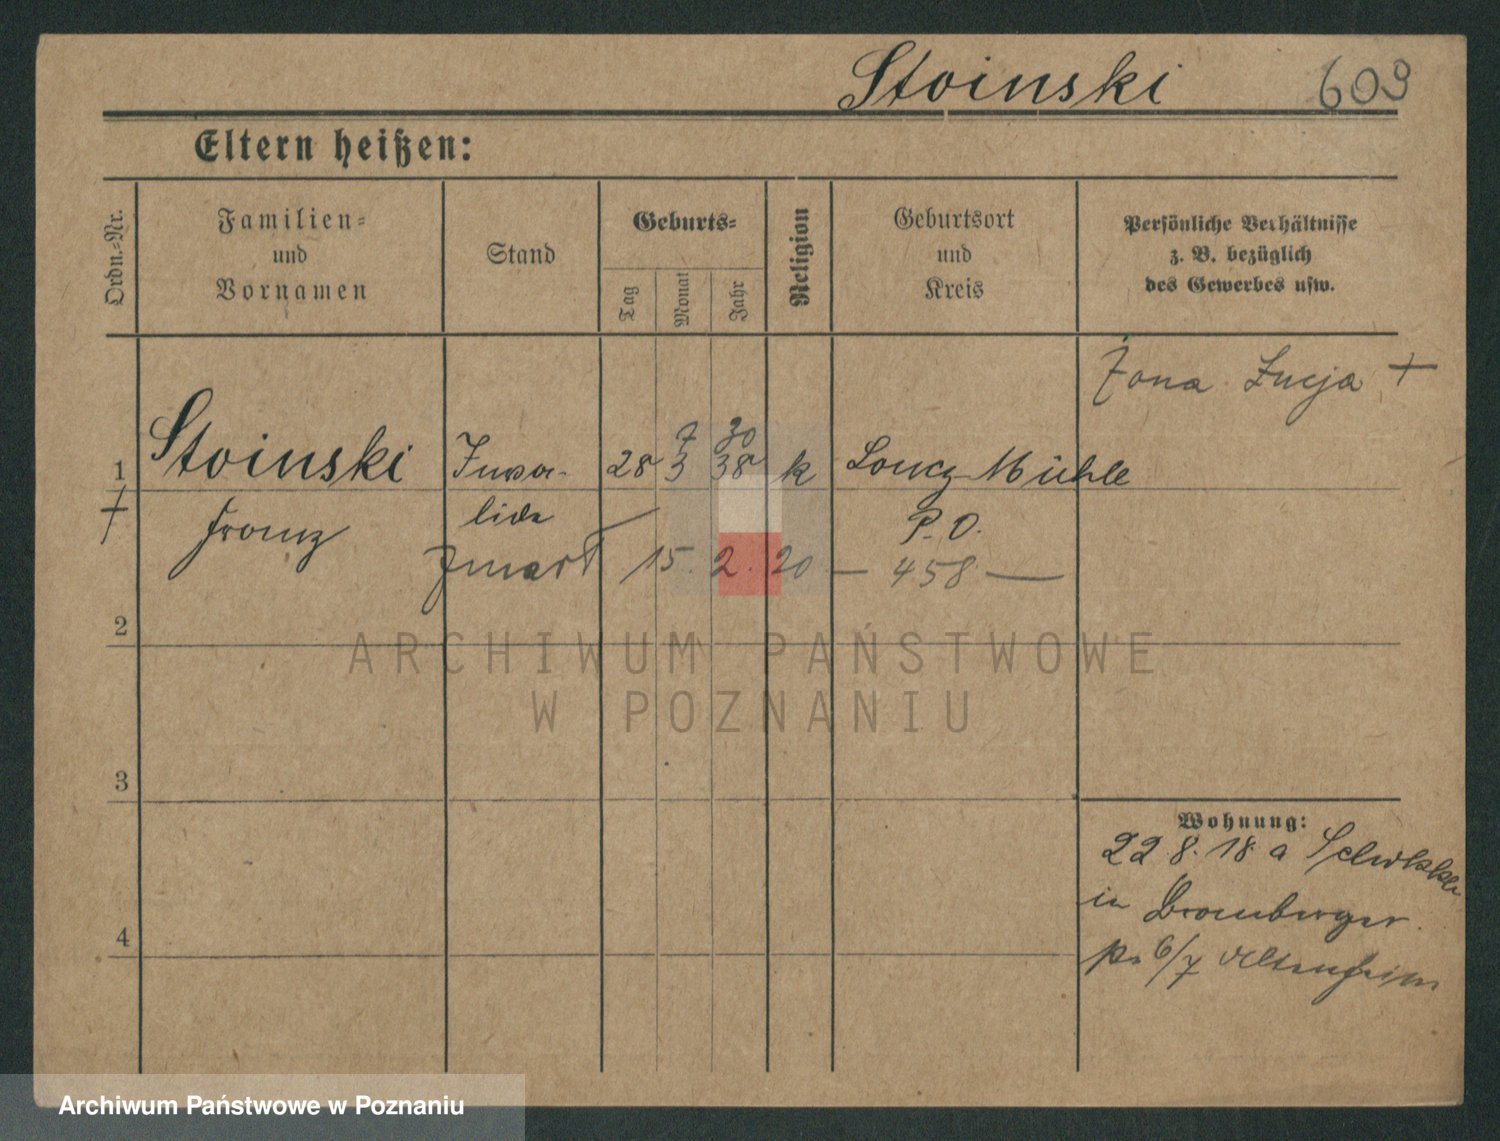 Stoinski 609
Eltern heißen:
Ordn.-Nr.
Familien- und Vornamen
Stand
Geburts-
Tag
Monat
Jahr
Religion
Geburtsort und Kreis
Persönliche Verhältnisse z. B. bezüglich des Gewerbes usw.
Żona Łucja +
7 30
1 Stoinski Inva- 28 3 38 k Mühle
+ Franz lide P. O.
zmarł 15. 2. 20 — 458 —
2
3
4
Wohnung:
22 8. 18 a
in Bromberger
6/7 Altenheim
ARCHIWUM PAŃSTWOWE
W POZNANIU
Archiwum Państwowe w Poznaniu